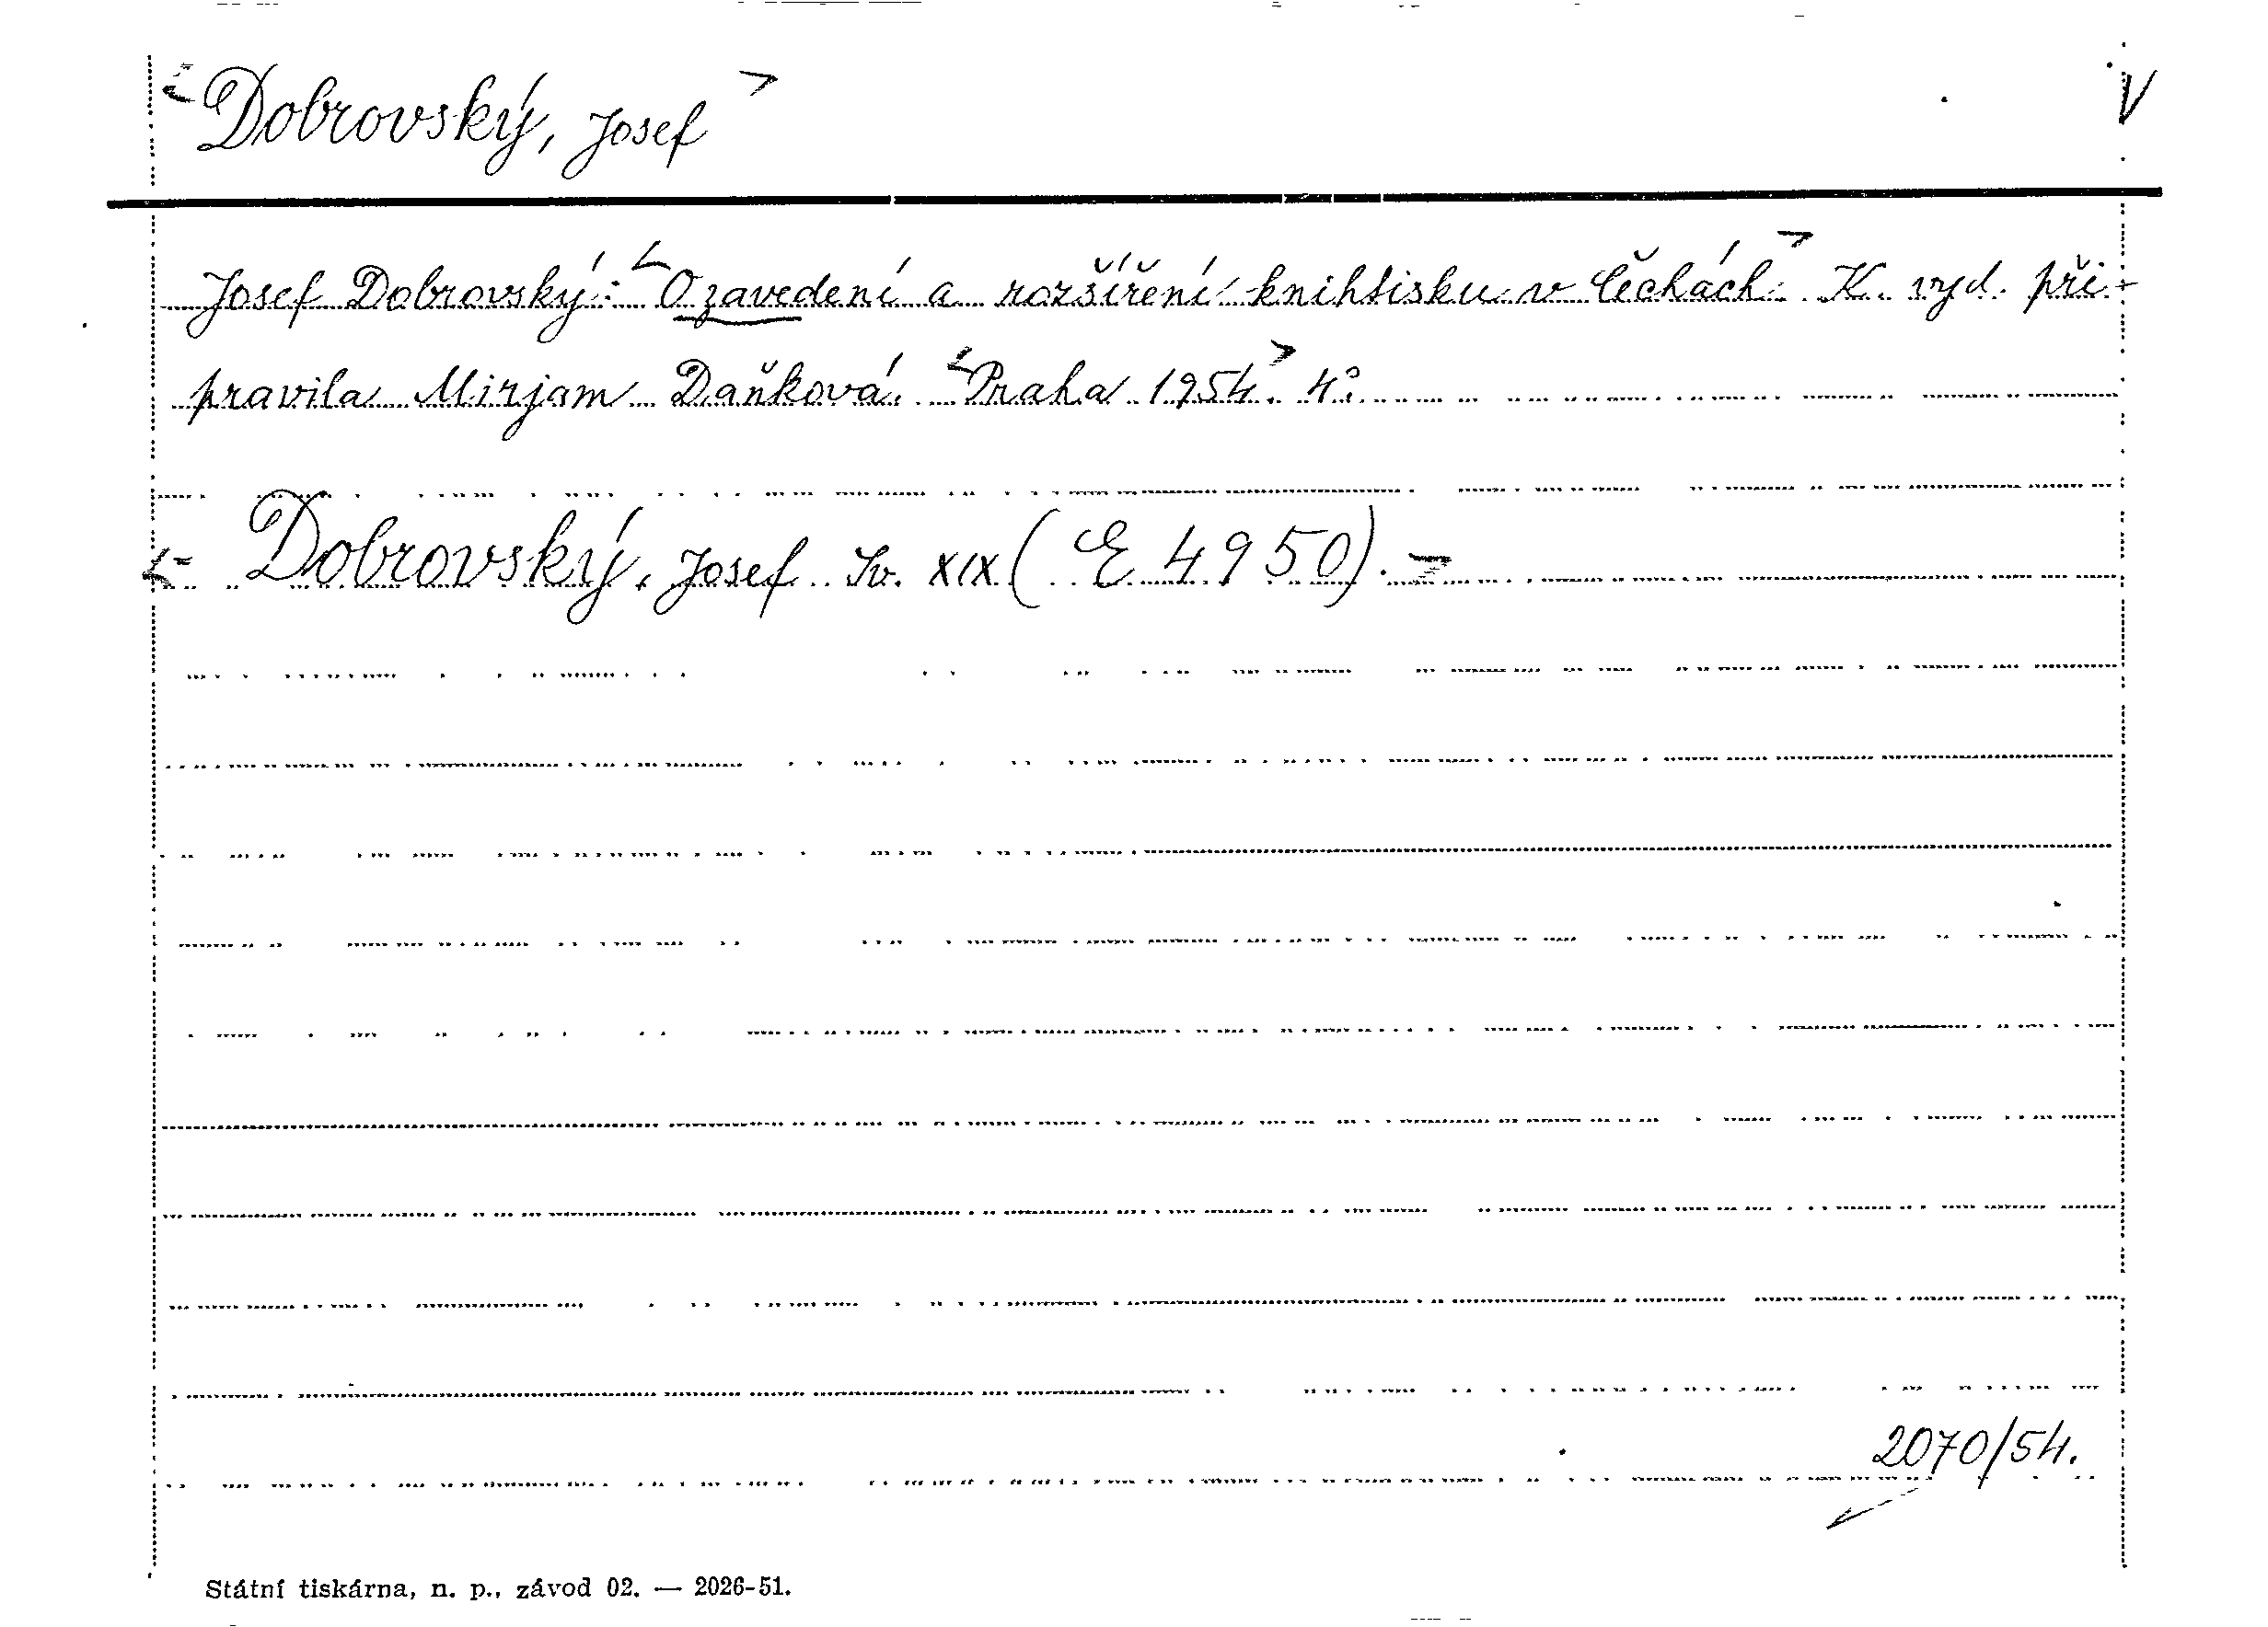 <Dobrovský, Josef> V
Josef Dobrovský: <O zavedení a rozšíření knihtisku v Čechách.> K. vyd. při-
pravila Mirjam Daňková. <Praha 1954.> 4°.
<- Dobrovský, Josef. Sv. XIX (E 4950). ->
2070/54.
Státní tiskárna, n. p., závod 02. — 2026-51.